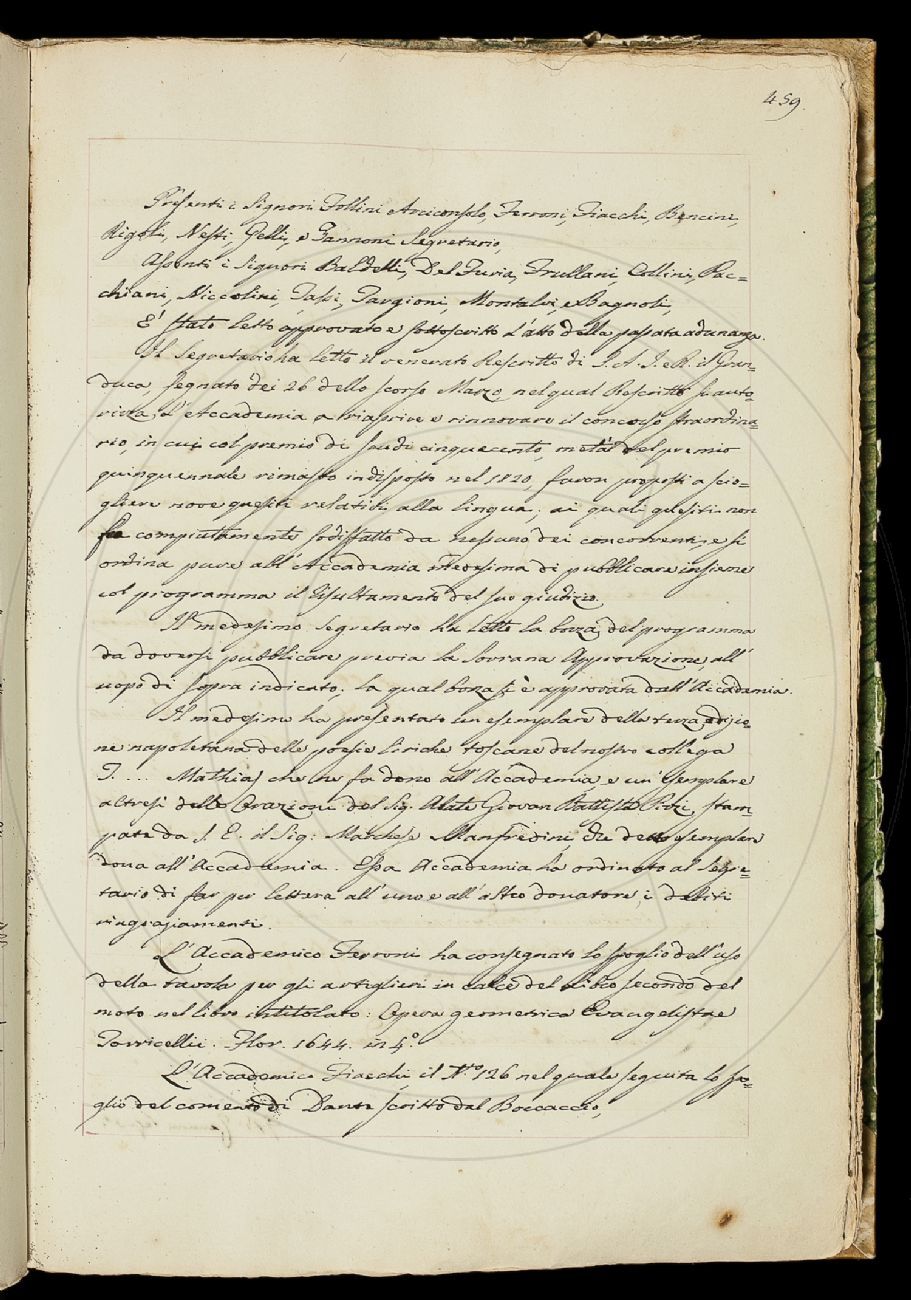 459.
Presenti i Signori Follini Arciconsolo, Ferroni, Fiacchi, Bencini,
Rigoli, Nesti, Gelli, e Zannoni Segretario,
Assenti i Signori Baldelli, Del Furia, Frullani Collini, Pac=
chiani, Niccolini, Tassi, Targioni, Montalvi, e Bagnoli,
E' stato letto approvato e sottoscritto l'atto della passata adunanza.
Il Segretario ha letto il venerato Rescritto di S. A. I. e R. il Gran=
duca, segnato dei 26 dello scorso Marzo, nel qual Rescritto si auto=
rizza l'Accademia a riaprire e rinnovare il concorso straordina=
rio, in cui col premio di scudi cinquecento, metà del premio
quinquennale rimasto indisposto nel 1820, furon proposti a scio=
gliere nove quesiti relativi alla lingua; ai quali quesiti non
fu compiutamente sodisfatto da nessuno dei concorrenti, e si
ordina pure all'Accademia medesima di pubblicare insieme
col programma il risultamento del suo giudizio.
Il medesimo Segretario ha letto la bozza del programma
da doversi pubblicare previa la Sovrana Approvazione, all'
uopo di sopra indicato; la qual bozza si è approvata dall'Accademia.
Il medesimo ha presentato un esemplare della terza edizio=
ne napoletana delle poesie liriche toscane del nostro collega
T.... Mathias che ne fa dono all'Accademia, e un esemplare
altresì delle Orazioni del Sig. Abate Giovan Battista stam=
pate da S. E. il Sig: Marchese Manfredini, che detto esemplare
dona all'Accademia. Essa Accademia ha ordinato al Segre=
tario di far per lettera all'uno e all'altro donatore i debiti
ringraziamenti.
L'Accademico Ferroni ha consegnato lo spoglio dell'uso
della tavola per gli artiglieri in calce del Libro secondo del
moto nel libro intitolato: Opera geometrica Evangelistae
Torricellii. Flor. 1644. in 4°.
L'Accademico Fiacchi, il N.° 126 nel quale seguita lo spo=
glio del comento di Dante scritto dal Boccaccio,